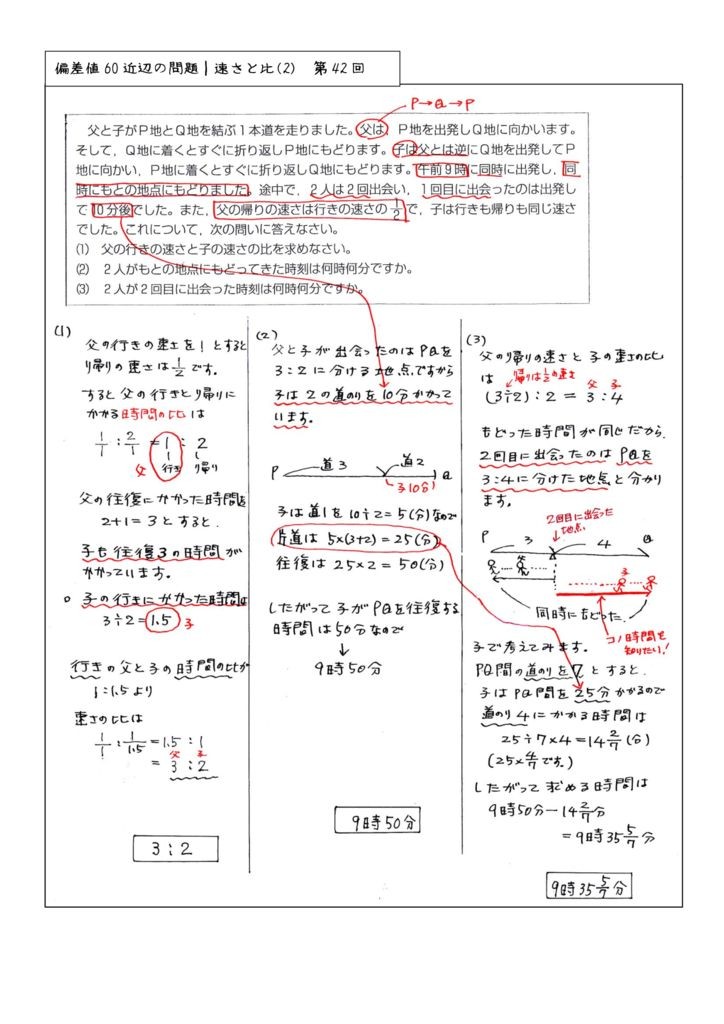 偏差値60近辺の問題 | 速さと比(2) 第42回
P→Q→P
父と子がP地とQ地を結ぶ1本道を走りました。父は、P地を出発しQ地に向かいます。
そして、Q地に着くとすぐに折り返しP地にもどります。子は父とは逆にQ地を出発してP
地に向かい、P地に着くとすぐに折り返しQ地にもどります。午前9時に同時に出発し、同
時にもとの地点にもどりました。途中で、2人は2回出会い、1回目に出会ったのは出発し
て10分後でした。また、父の帰りの速さは行きの速さの1/2で、子は行きも帰りも同じ速さ
でした。これについて、次の問いに答えなさい。
(1) 父の行きの速さと子の速さの比を求めなさい。
(2) 2人がもとの地点にもどってきた時刻は何時何分ですか。
(3) 2人が2回目に出会った時刻は何時何分ですか。
(1)
父の行きの速さを1とすると
帰りの速さは1/2です。
すると父の行きと帰りに
かかる時間の比は
1/1 : 2/1 = 1 : 2
父 行き 帰り
父の往復にかかった時間を
2+1=3とすると、
子も往復3の時間が
かかっています。
。子の行きにかかった時間は
3÷2=1.5 子
行きの父と子の時間の比が
1:1.5より
速さの比は
1/1 : 1/1.5 = 1.5 : 1
父 子
= 3 : 2
3:2
(2)
父と子が出会ったのはPQを
3:2に分ける地点ですから
子は2の道のりを10分かかって
います。
道3 道2
P Q
子10分
子は道1を10÷2=5(分)なので
片道は5×(3+2)=25(分)
往復は25×2=50(分)
したがって子がPQを往復する
時間は50分なので
↓
9時50分
9時50分
(3)
父の帰りの速さと子の速さの比
は 帰りは1/2の速さ
父 子
(3÷2):2=3:4
もどった時間が同じだから、
2回目に出会ったのはPQを
3:4に分けた地点と分かり
ます。
2回目に出会った
地点
P 3 4 Q
父 父 子 子
同時にもどった
コノ時間を
知りたい!
子で考えてみます。
PQ間の道のりを7とすると、
子はPQ間を25分かかるので
道のり4にかかる時間は
25÷7×4=14 2/7(分)
(25×4/7です。)
したがって求める時間は
9時50分−14 2/7分
=9時35 5/7分
9時35 5/7分